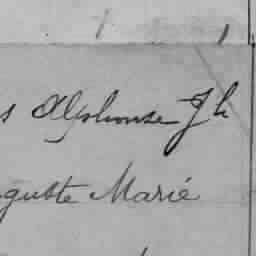 s Alphonse Jh
guste Marie